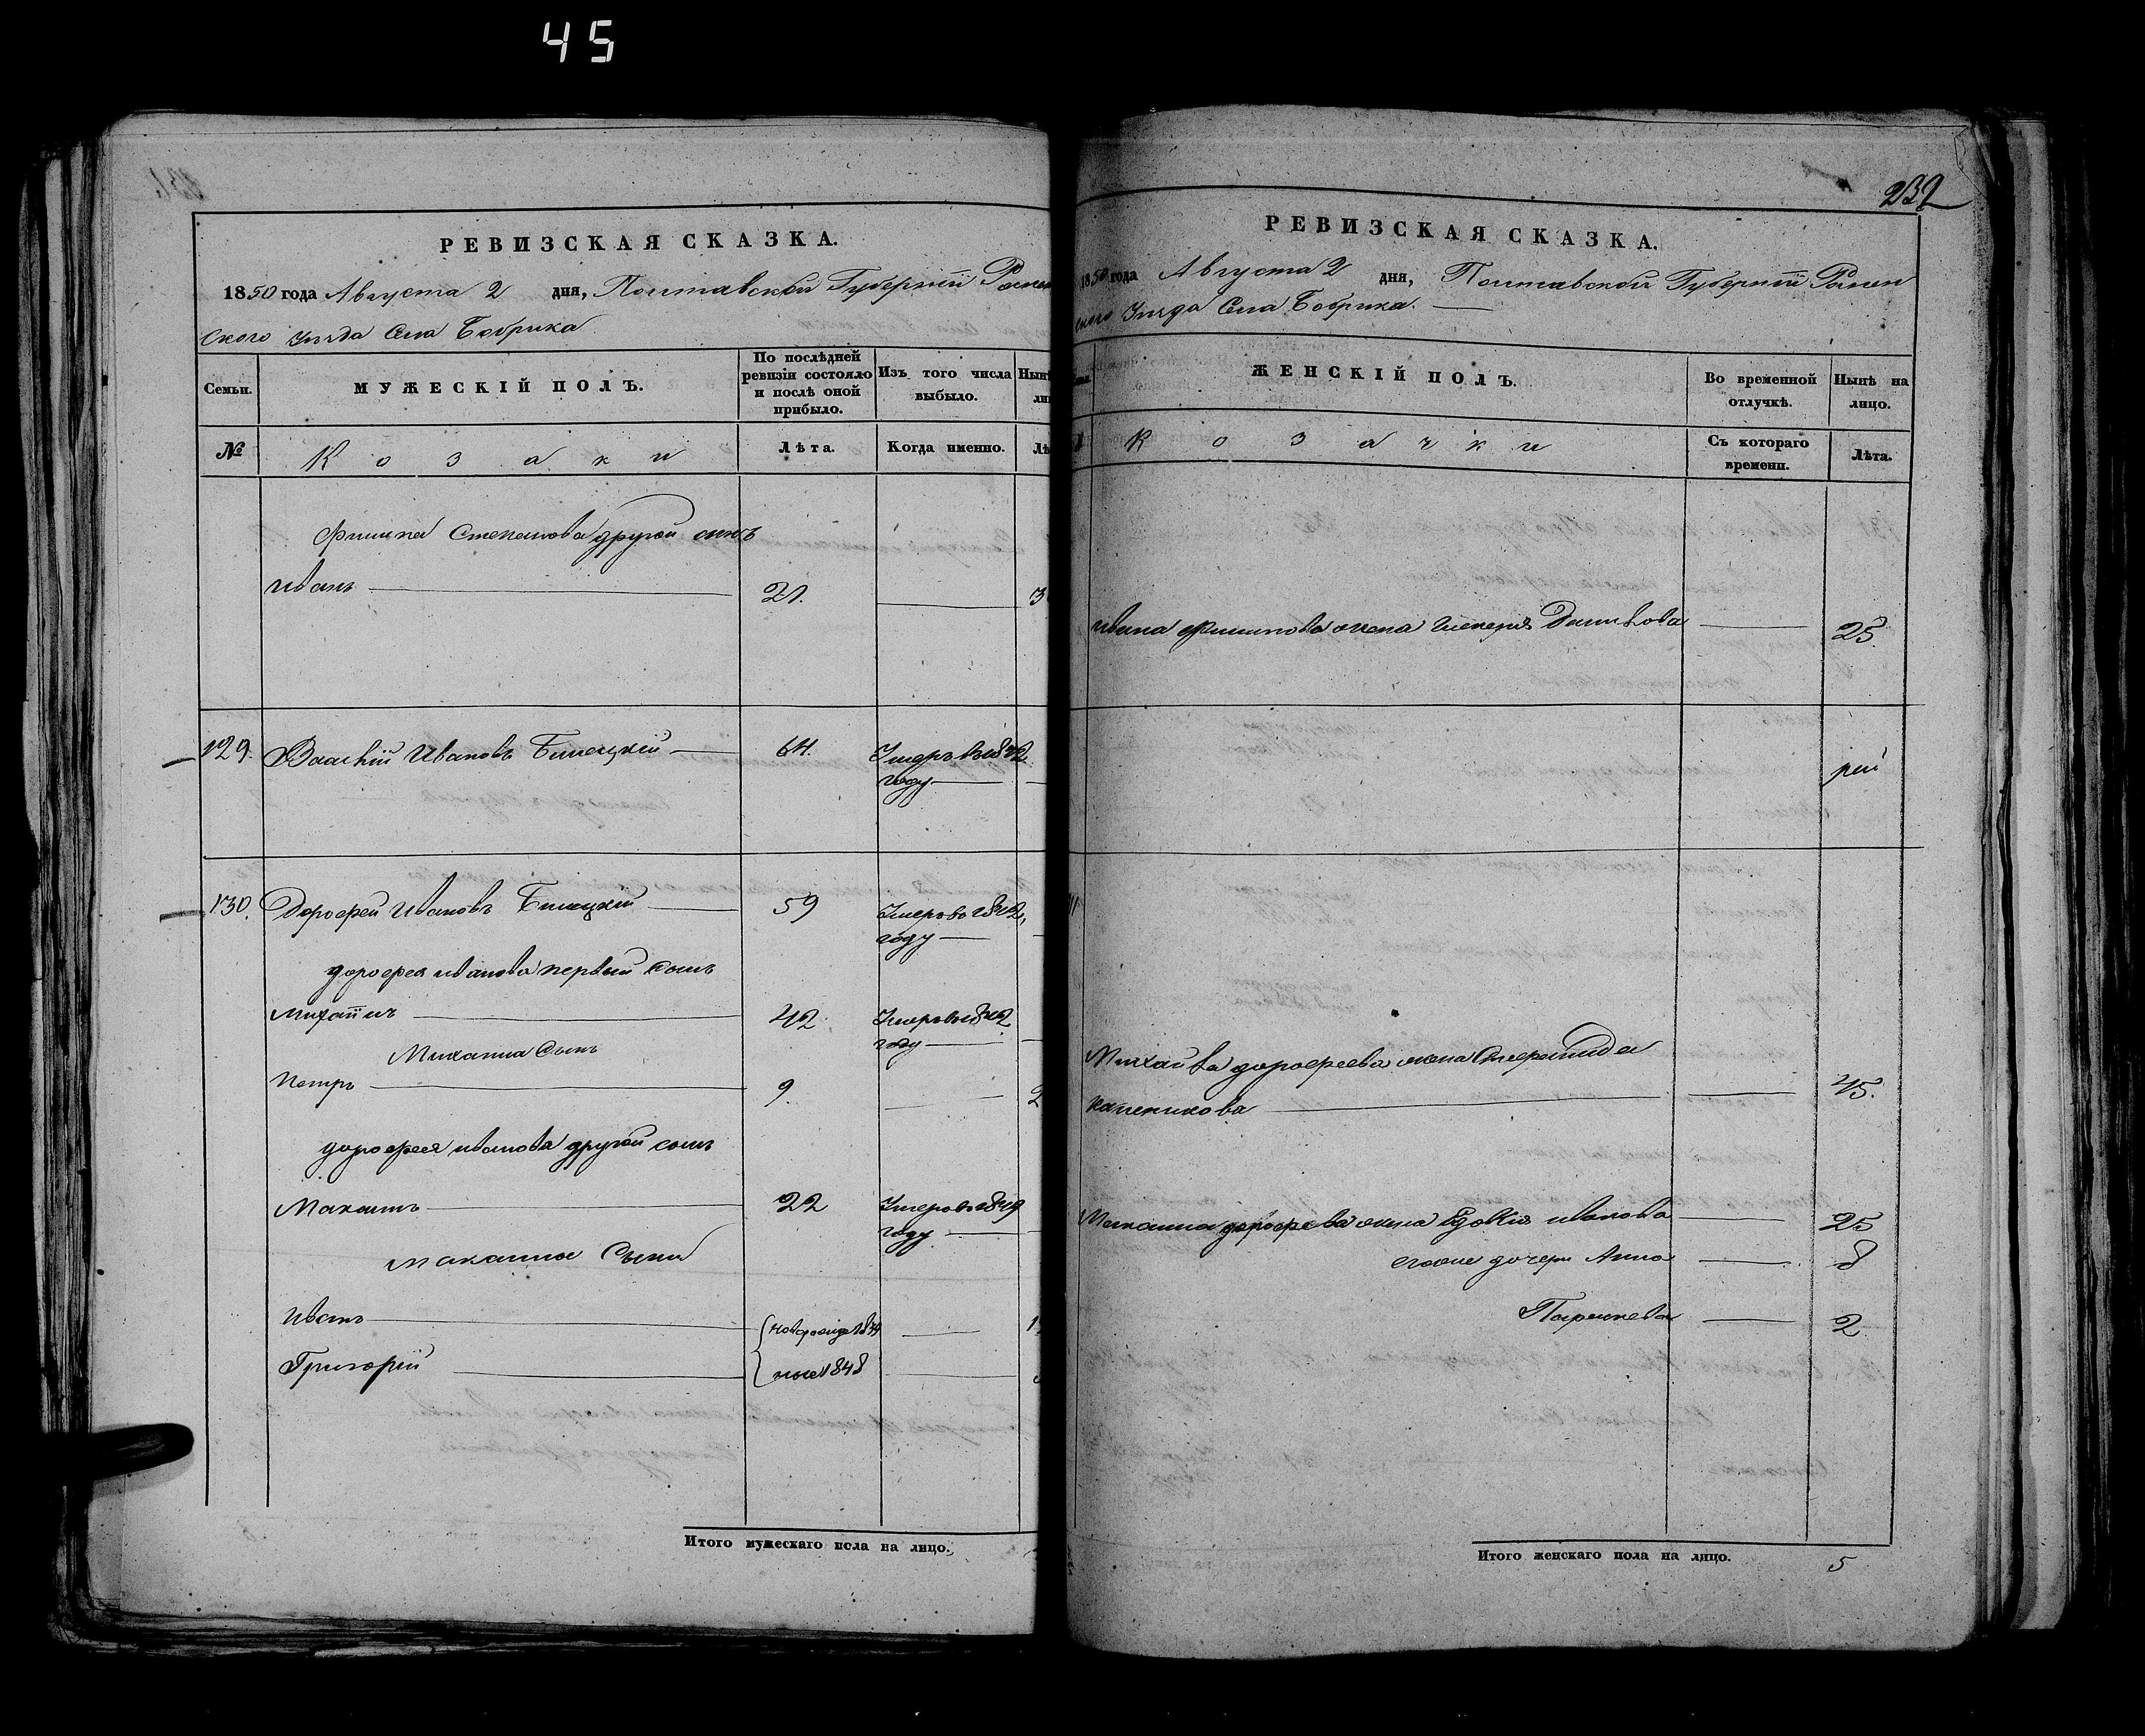 45
РЕВИЗСКАЯ СКАЗКА.
1850 года Августа 2 дня, Полтавской Губерніи Ромен
ского уѣзда Села Бобрика
Семьи.
МУЖЕСКІЙ ПОЛЪ.
По послѣдней ревизіи состояло и послѣ оной прибыло.
Изъ того числа выбыло.
№
Козаки
Лѣта.
Когда именно.
Филипа Степанова другой сынъ
Иванъ 21.
129. Василій Ивановъ Билецкій 64. Умеръ въ 1842
году
130. Дорофей Ивановъ Билецкій 59 Умеръ во 1842
году
дорофея иванова первый сынъ
Михаилъ 42 Умеръ въ 1842
году
Михаила Сынъ
Петръ 9.
дорофея иванова другой сынъ
Макаимъ 22 Умеръ во 1849
году
Иванъ
Григорій ные 1848
Итого мужескаго пола на лицо.
232
РЕВИЗСКАЯ СКАЗКА.
1850 года Августа 2 дня, Полтавской Губерніи Ромен
ского Уѣзда Села Бобрика.
ЖЕНСКІЙ ПОЛЪ.
Во временной отлучкѣ.
Нынѣ на лицо.
Козачки
Съ котораго времени.
Лѣта.
Ивана Филипова жена 25.
Михайла дорофеева жена
45.
дорофеева жена Евдокія иванова 25
дочери Анна 8
2
Итого женскаго пола на лицо. 5